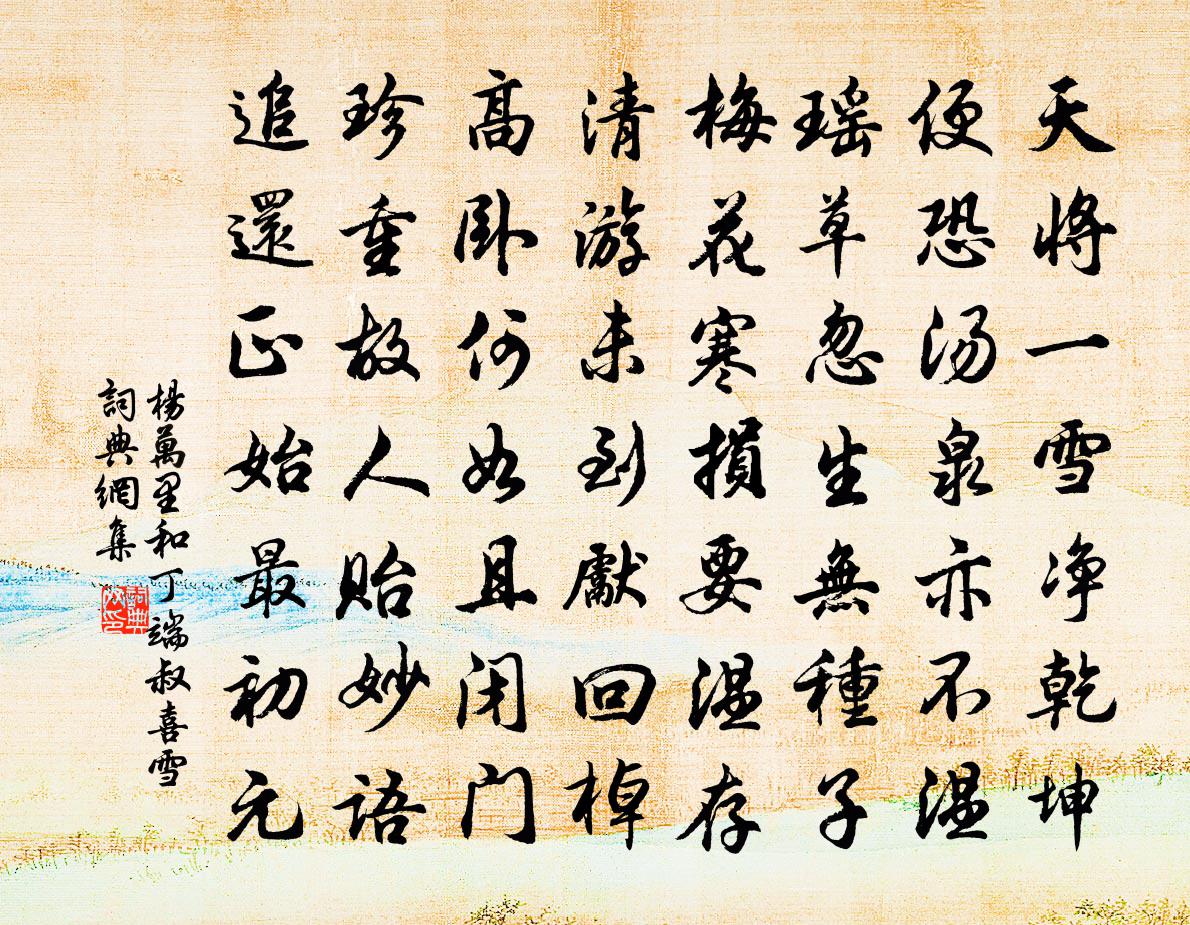 天將一雪净乾坤
便恐汤泉亦不温
瑶草忽生無種子
梅花寒損要温存
清游未到獻回棹
高卧何如且闭门
珍重故人貽妙语
追還正始最初元
楊萬里和丁端叔喜雪
詞典網集